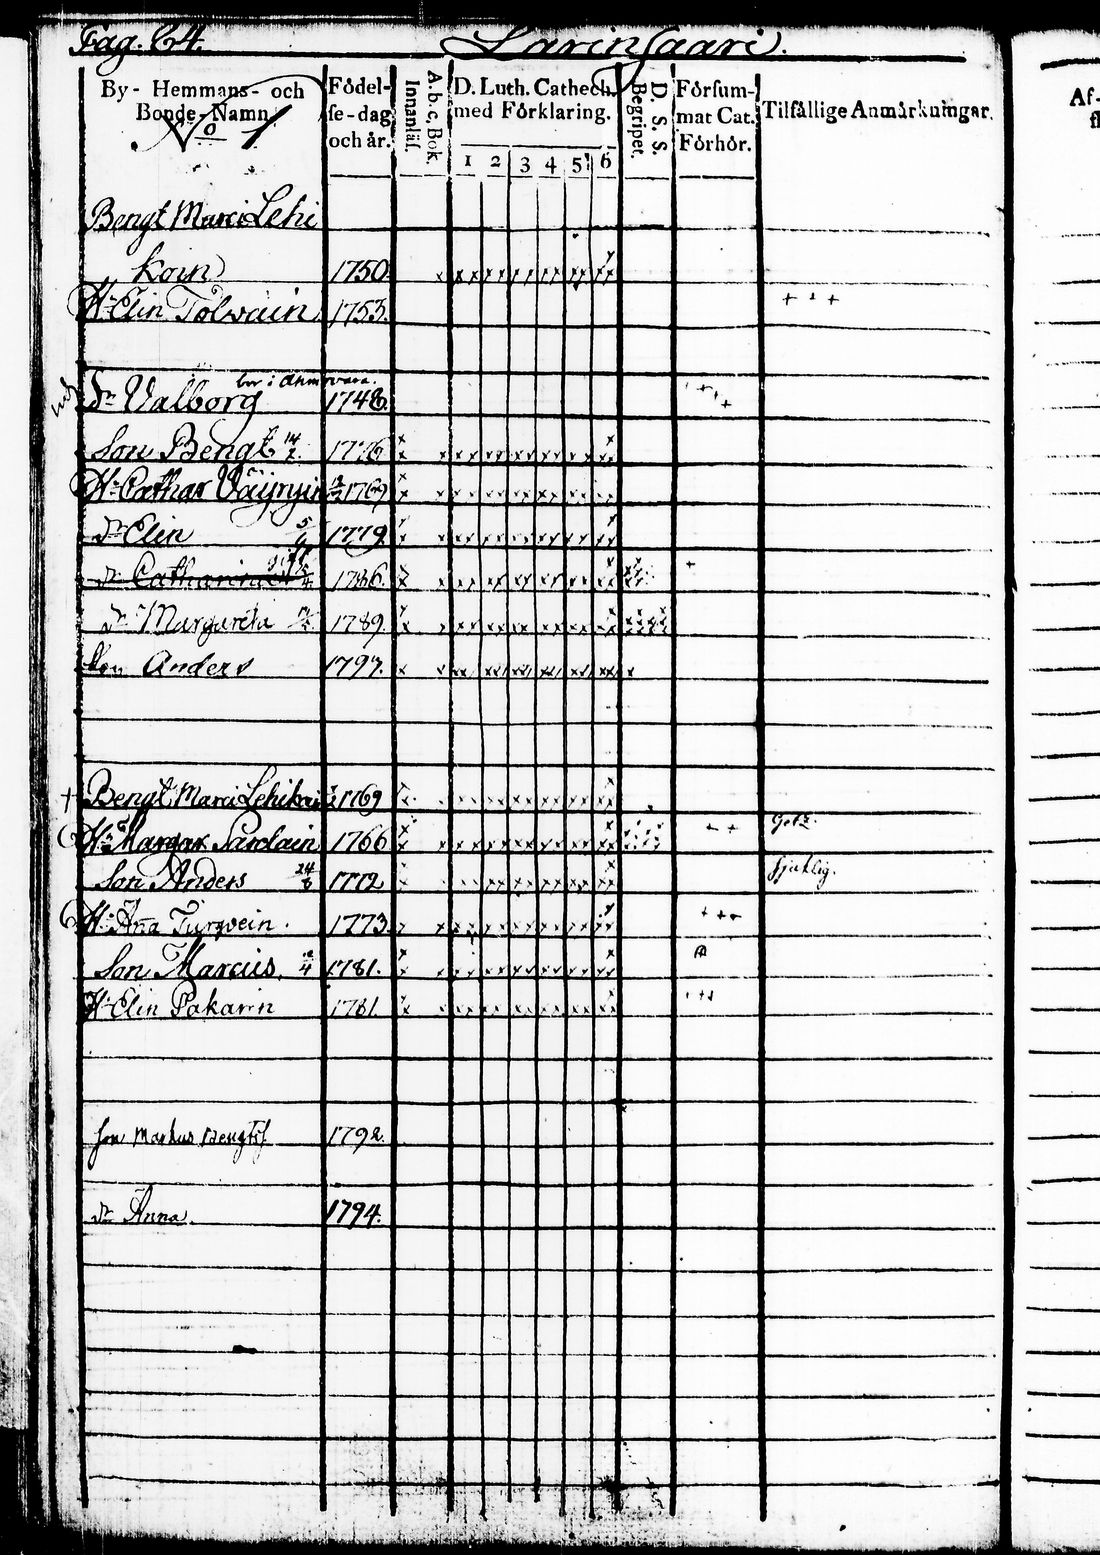 Pag. 64. Larinsaari.
By- Hemmans- och Bonde-Namn
No 1
Födel-se-dag och år.
A.b.c, Bok. Innanläs.
D. Luth. Cathech. med Förklaring.
1 2 3 4 5 6
D. S. S. Begripet.
Försum-mat Cat. Förhör.
Tilfällige Anmärkningar.
Af-
Bengt Marci Lehi
koin 1750
H. Elin Tolvain 1753.
bor i
dr Valborg 1748.
Son Bengt 14/2 1776
H. Cathar Väyryin 1769
dr Elin 5/6 1779
dr Catharina 1786
dr Margareta 1789.
Son Anders 1797.
Bengt Marci Lehikoi 1769
H. Margar Pardain 1766
Son Anders 24/8 1772
sjuklig.
H. Anna Turvein. 1773
Son Marcus 4 1781.
H. Elin Pakarin 1781.
son Markus Bengts. 1792.
dr Anna. 1794.